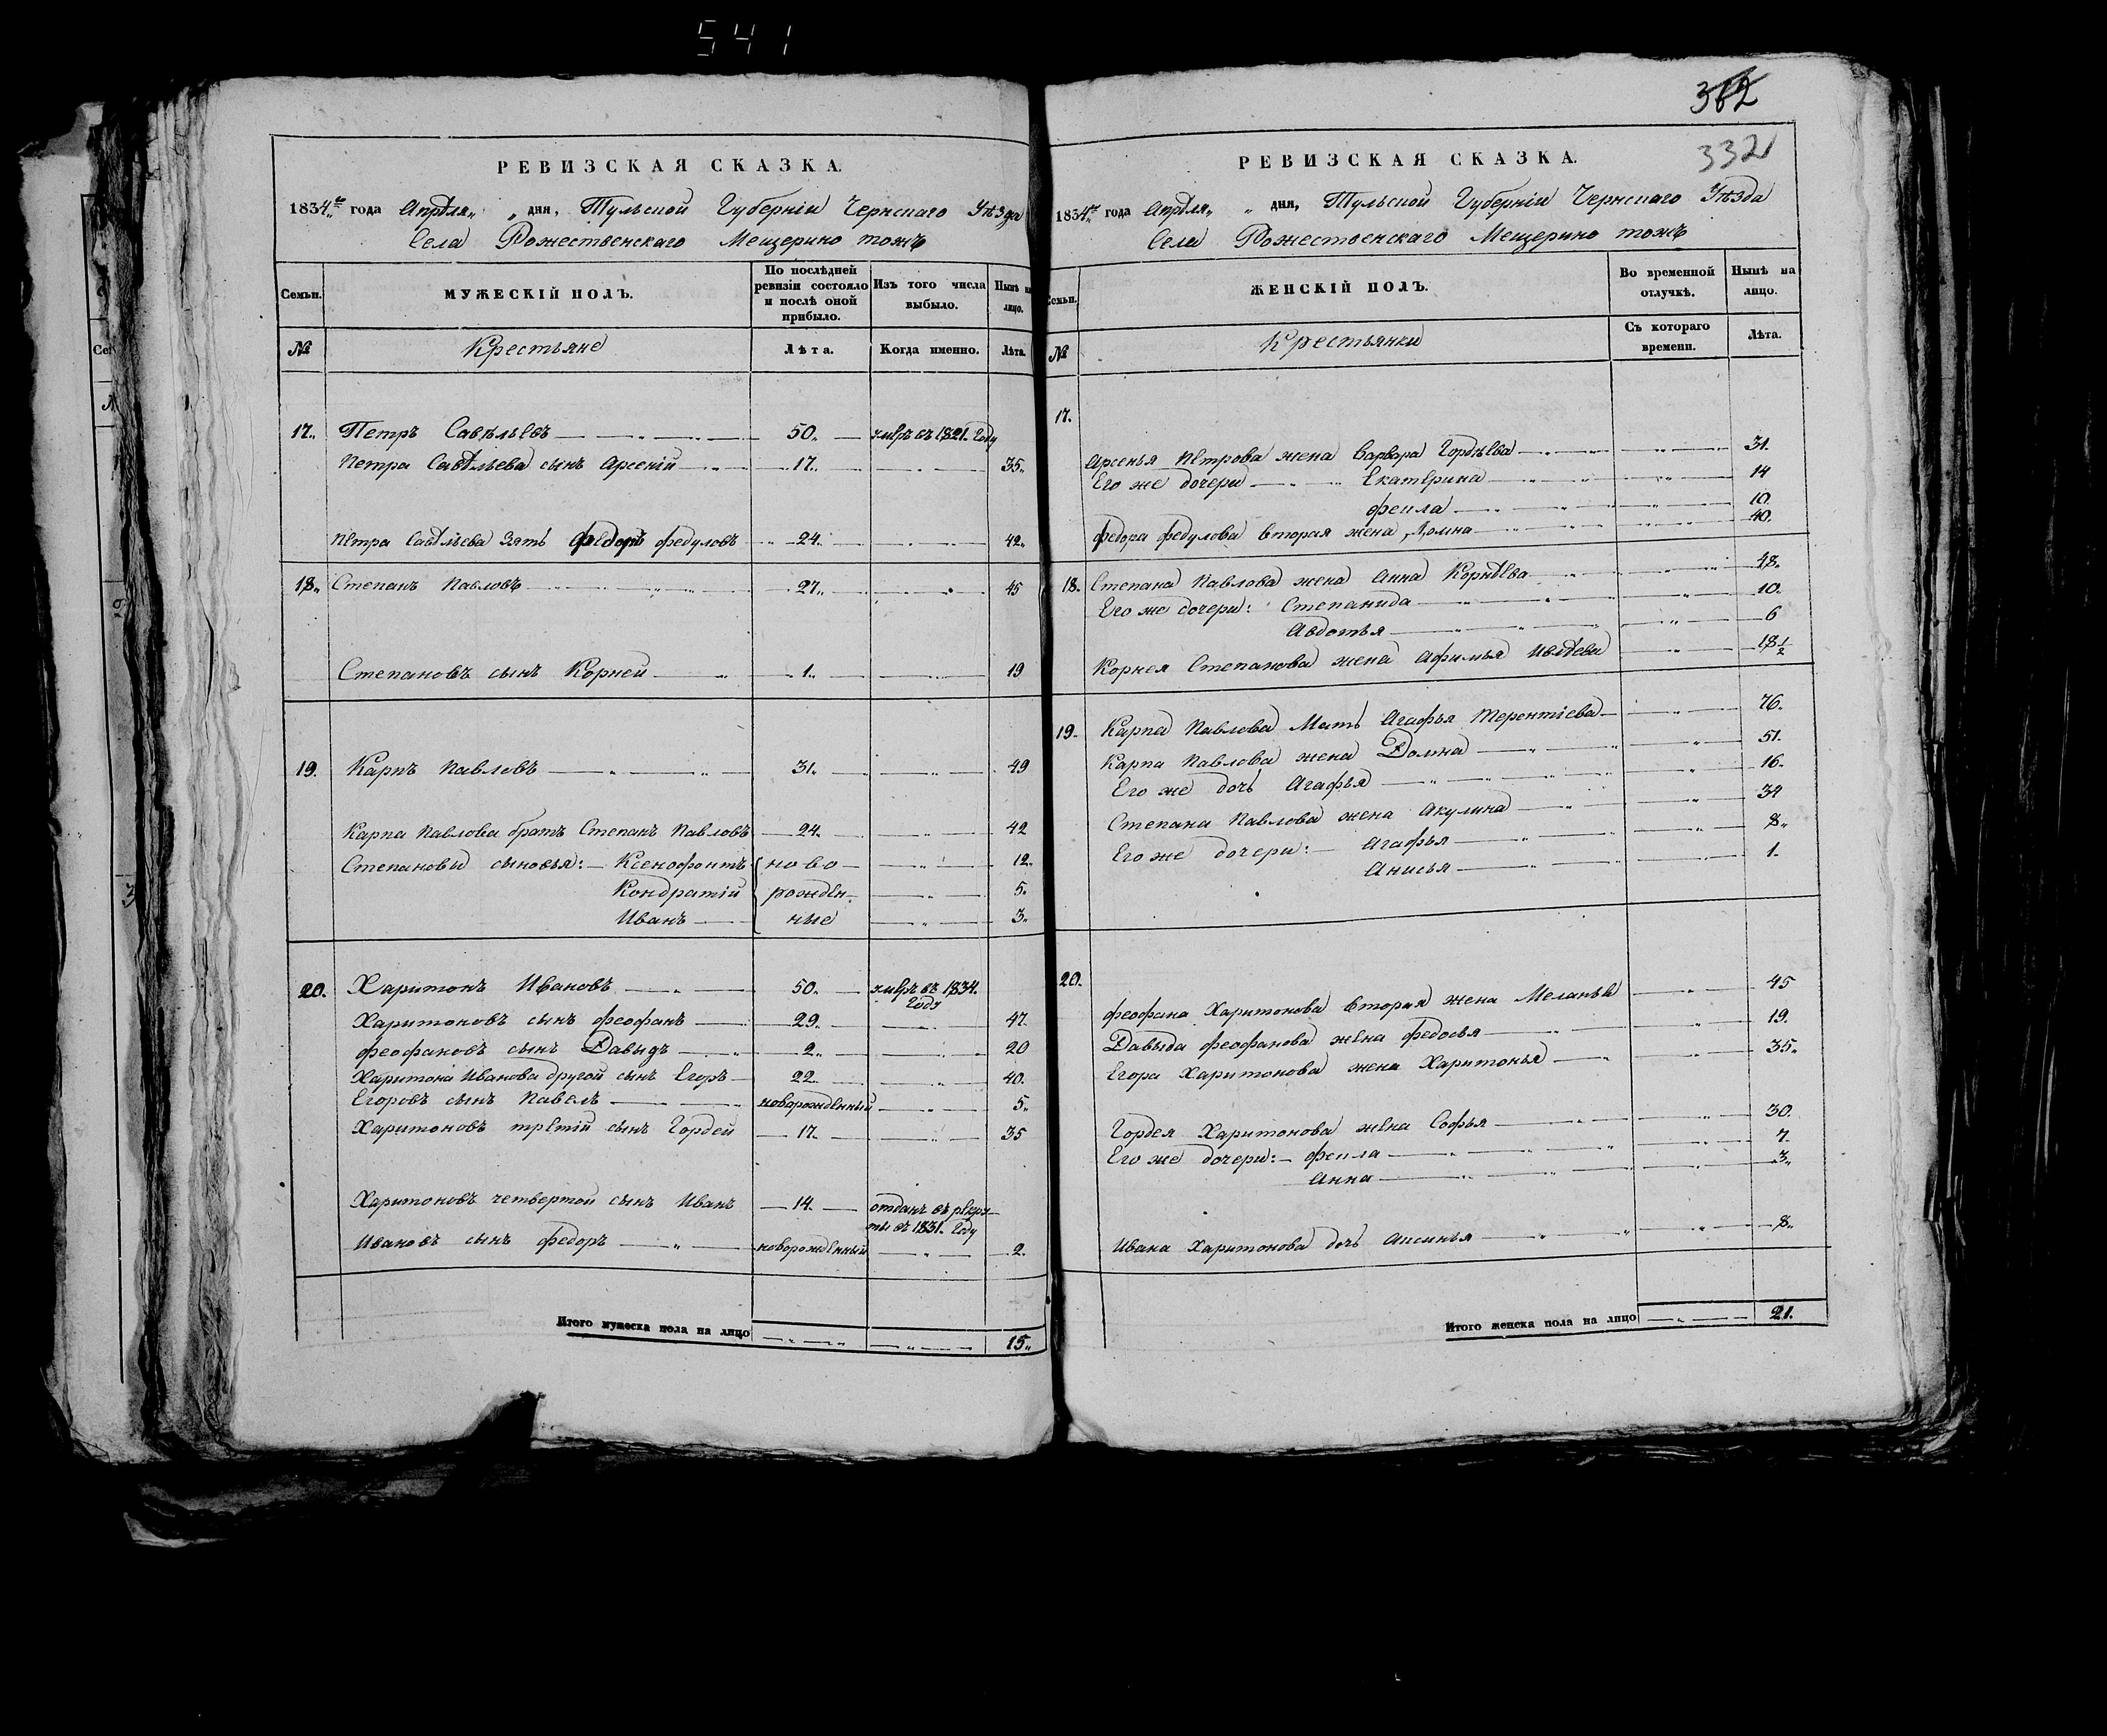 541
362
332
РЕВИЗСКАЯ СКАЗКА.
1834го года Апрѣля „ дня, Тульской Губерніи Чернскаго Уѣзда
Села Рожественскаго Мещерино тожъ
Семьи. МУЖЕСКІЙ ПОЛЪ. По послѣдней ревизіи состояло и послѣ оной прибыло. Изъ того числа выбыло. Нынѣ на лицо.
№ Крестьяне Лѣта. Когда именно. Лѣта.
17. Петръ Савѣльевъ 50. умеръ въ 1821. Году
Петра Савѣльева сынъ Арсеній 17. 35.
Петра Савѣльева Зять Федоръ Федуловъ 24. 42.
18. Степанъ Павловъ 27. 45
Степановъ сынъ Корней 1. 19
19. Карпъ Павловъ 31. 49
Карпа Павлова братъ Степанъ Павловъ 24. 42
Степановы сыновья: Ксенофонтъ ново- 12.
Кондратій рожден- 5.
Иванъ ные 3.
20. Харитонъ Ивановъ 50. умеръ въ 1834. Году
Харитоновъ сынъ Феофанъ 29. 47.
Феофановъ сынъ Давыдъ 2. 20
Харитона Иванова другой сынъ Егоръ 22. 40.
Егоровъ сынъ Павелъ новорожденный 5.
Харитоновъ третій сынъ Гордей 17. 35
Харитоновъ четвертой сынъ Иванъ 14. отданъ въ рекру-
ты въ 1831. Году
Ивановъ сынъ Федоръ новорожденный 2.
Итого мужеска пола на лицо 15.
РЕВИЗСКАЯ СКАЗКА.
1834го года Апрѣля „ дня, Тульской Губерніи Чернскаго Уѣзда
Села Рожественскаго Мещерино тожъ
Семьи. ЖЕНСКІЙ ПОЛЪ. Во временной отлучкѣ. Нынѣ на лицо.
№ Крестьянки Съ котораго времени. Лѣта.
17.
Арсенья Петрова жена Варвора Гордѣева 31.
Его же дочери Екатерина 14
Фекла 10.
Федора Федулова вторая жена Домна 40.
18. Степана Павлова жена Анна Корнѣева 48.
Его же дочери: Степанида 10.
Авдотья 6
Корнея Степанова жена Афимья Ивлѣева 18 1/2
19. Карпа Павлова Мать Агафья Терентіева 76.
Карпа Павлова жена Домна 51.
Его же дочь Агафья 16.
Степана Павлова жена Акулина 34
Его же дочери: Агафья 8.
Анисья 1.
20.
Феофана Харитонова вторая жена Меланья 45
Давыда Феофанова жена Федосья 19.
Егора Харитонова жена Харитонья 35.
Гордея Харитонова жена Софья 30.
Его же дочери: Фекла 7.
Анна 3.
Ивана Харитонова дочь Аксинья 8.
Итого женска пола на лицо 21.